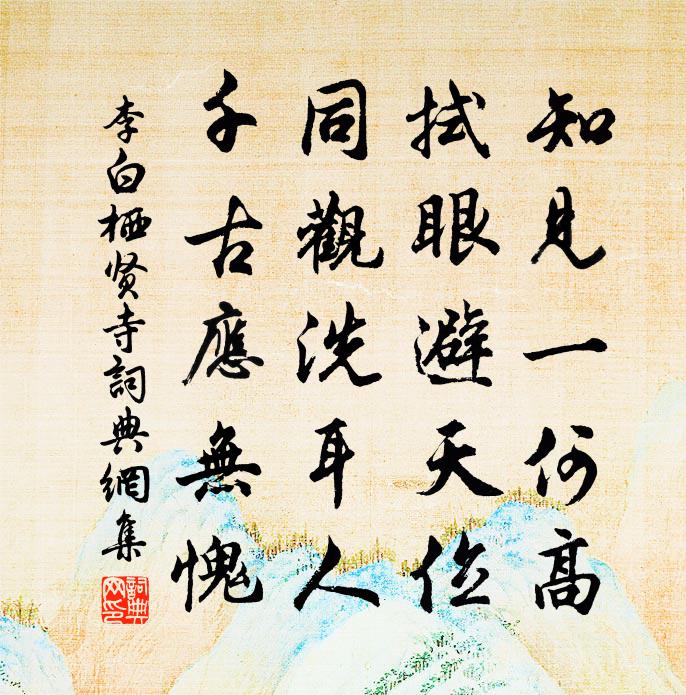 知見一何高
拭眼避天位
同觀洗耳人
千古應無愧
李白栖贤寺詞典網集
詞典